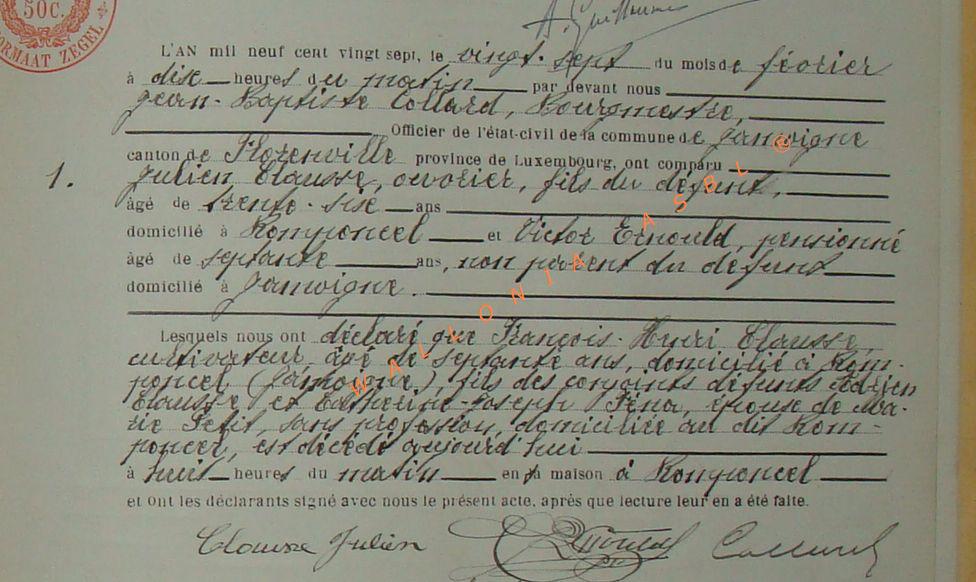 50C.
FORMAAT ZEGEL
A. Guillaume
L'AN mil neuf cent vingt sept, le vingt-sept du mois de février
à dise heures du matin par devant nous
Jean-Baptiste Collard, Bourgmestre,
Officier de l'état-civil de la commune de Jamoigne
canton de Florenville province de Luxembourg, ont comparu
1.
Julien Clausse, ouvrier, fils du défunt,
âgé de trente-sise ans
domicilié à Romponcel et Victor Ernould, pensionné
âgé de septante ans, non parent du défunt
domicilié à Jamoigne.
Lesquels nous ont déclaré que François-Henri Clausse,
cultivateur, âgé de septante ans, domicilié à Rom-
poncel (Jamoigne), fils des conjoints défunts Adrien
Clausse et Catherine-Joseph Féna, épouse de Ma-
rie Petit, sans profession, domiciliée au dit Rom-
poncel, est décédé aujourd'hui
à huit heures du matin en sa maison à Romponcel
et ont les déclarants signé avec nous le présent acte, après que lecture leur en a été faite.
Clausse Julien Ernould Collard
WALLONIA ASBL ©